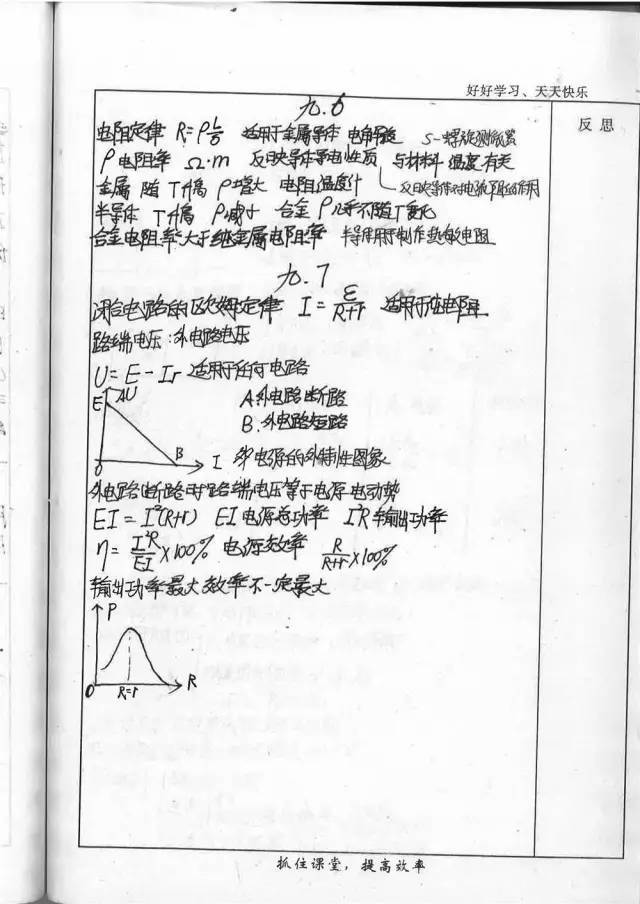 好好学习、天天快乐
反思
九.6
电阻定律 R=ρL/S 适用于金属导体 电解液 S-螺旋测微器
ρ电阻率 Ω·m 反映导体导电性质 与材料 温度有关
金属 随T升高 ρ增大 电阻温度计 反映导体对电流阻碍作用
半导体 T升高 ρ减小 合金ρ几乎不随T变化
合金电阻率大于纯金属电阻率 半导体用于制作热敏电阻
九.7
闭合电路的欧姆定律 I=ε/(R+r) 适用于纯电阻
路端电压:外电路电压
U=E-Ir 适用于任何电路
U
E
A
A.外电路断路
B.外电路短路
B
0
I
电源的外特性图象
外电路断路时路端电压等于电源电动势
EI=I²(R+r) EI电源总功率 I²R输出功率
η=I²R/EI×100% 电源效率 R/(R+r)×100%
输出功率最大效率不一定最大
P
0
R=r
R
抓住课堂,提高效率